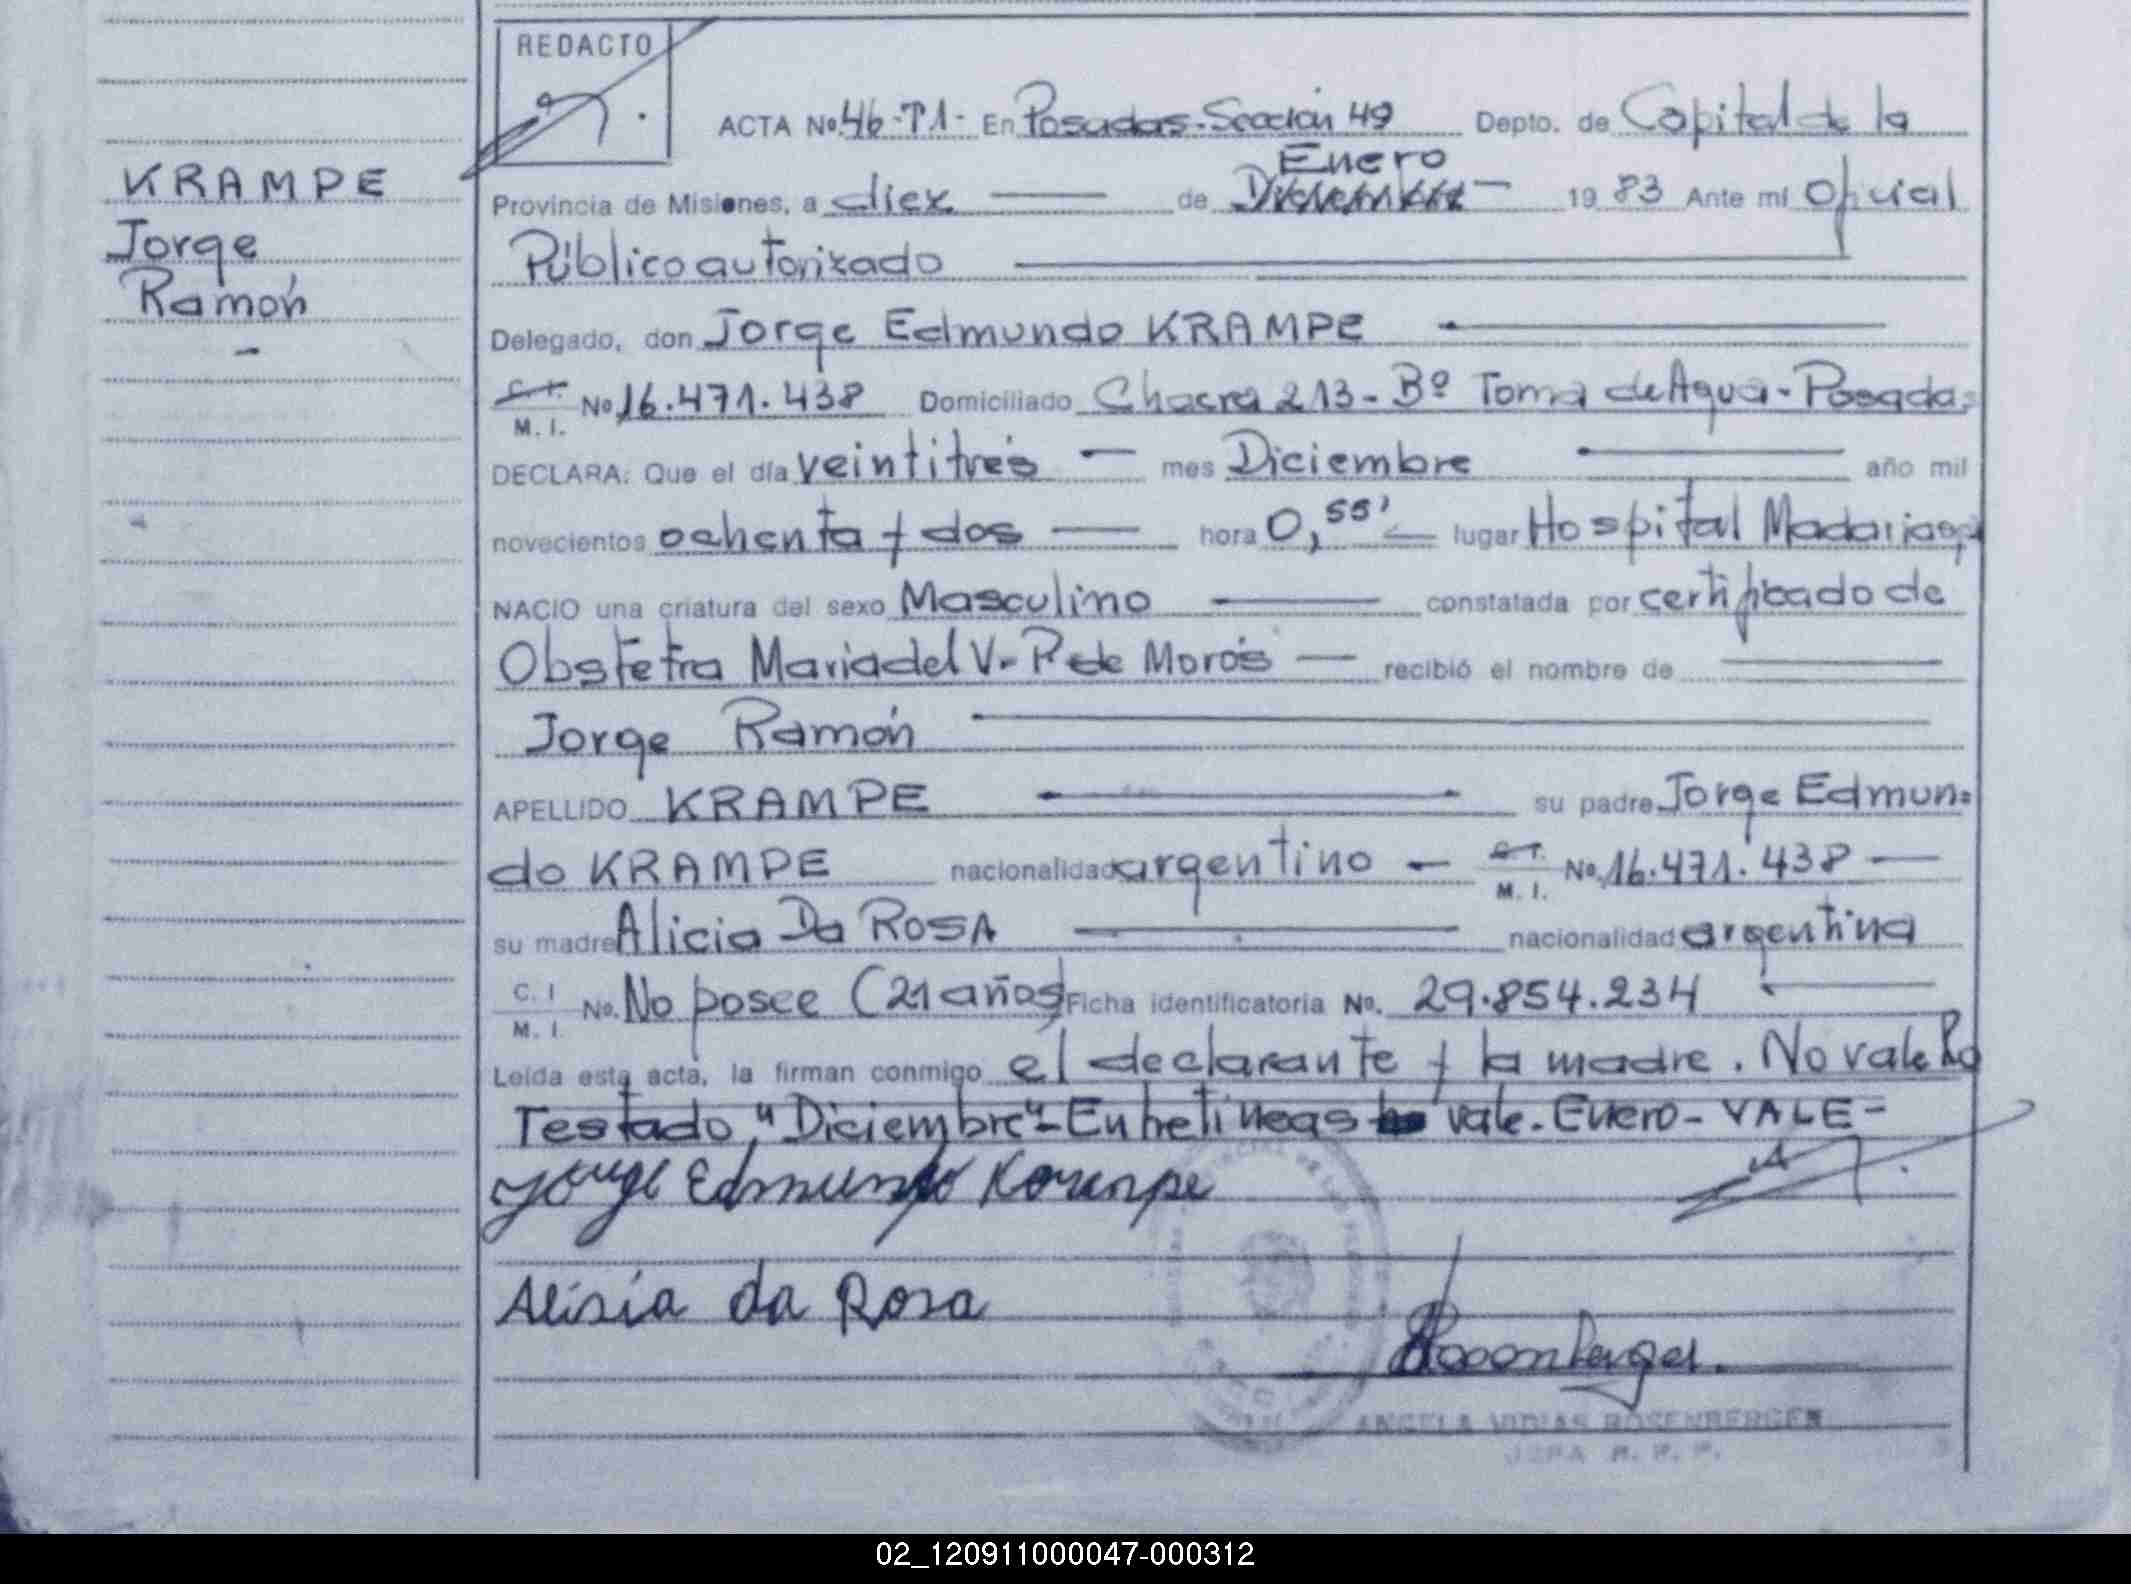 REDACTO
ACTA No. 46-T1- En Posadas-Sección 49 Depto. de Capital de la
Enero
Provincia de Misiones, a diez de Diciembre 19 83 Ante mi Oficial
Público autorizado
KRAMPE
Jorge
Ramón
Delegado, don Jorge Edmundo KRAMPE
C. I.
M. I. No 16.471.438 Domiciliado Chacra 213- Bº Toma de Agua-Posadas
DECLARA: Que el día veintitrés mes Diciembre año mil
novecientos ochenta y dos hora 0,55' lugar Hospital Madariaga
NACIO una criatura del sexo Masculino constatada por certificado de
Obstetra Maria del V. P. de Morós recibió el nombre de
Jorge Ramón
APELLIDO KRAMPE su padre Jorge Edmun=
do KRAMPE nacionalidad argentino C. I.
M. I. No. 16.471.438
su madre Alicia Da ROSA nacionalidad argentina
C. I
M. I. No. No posee (21 años) Ficha identificatoria No. 29.854.234
Leída esta acta, la firman conmigo el declarante y la madre. No vale lo
Testado "Diciembre"- Entrelineas vale. Enero- VALE-
Jorge Edmundo Krampe
Alisia da Rosa
Rosenberger.
ANGELA ROSENBERGER
JEFA R. P. P.
02_120911000047-000312